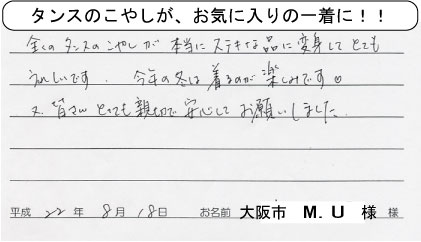 タンスのこやしが、お気に入りの一着に！！
全くのタンスのこやしが本当にステキな品に変身してとても
うれしいです。今年の冬は着るのが楽しみです♡
又、皆さんとっても親切で安心してお願いしました。
平成 22 年 8 月 18 日 お名前 大阪市 M.U 様 様